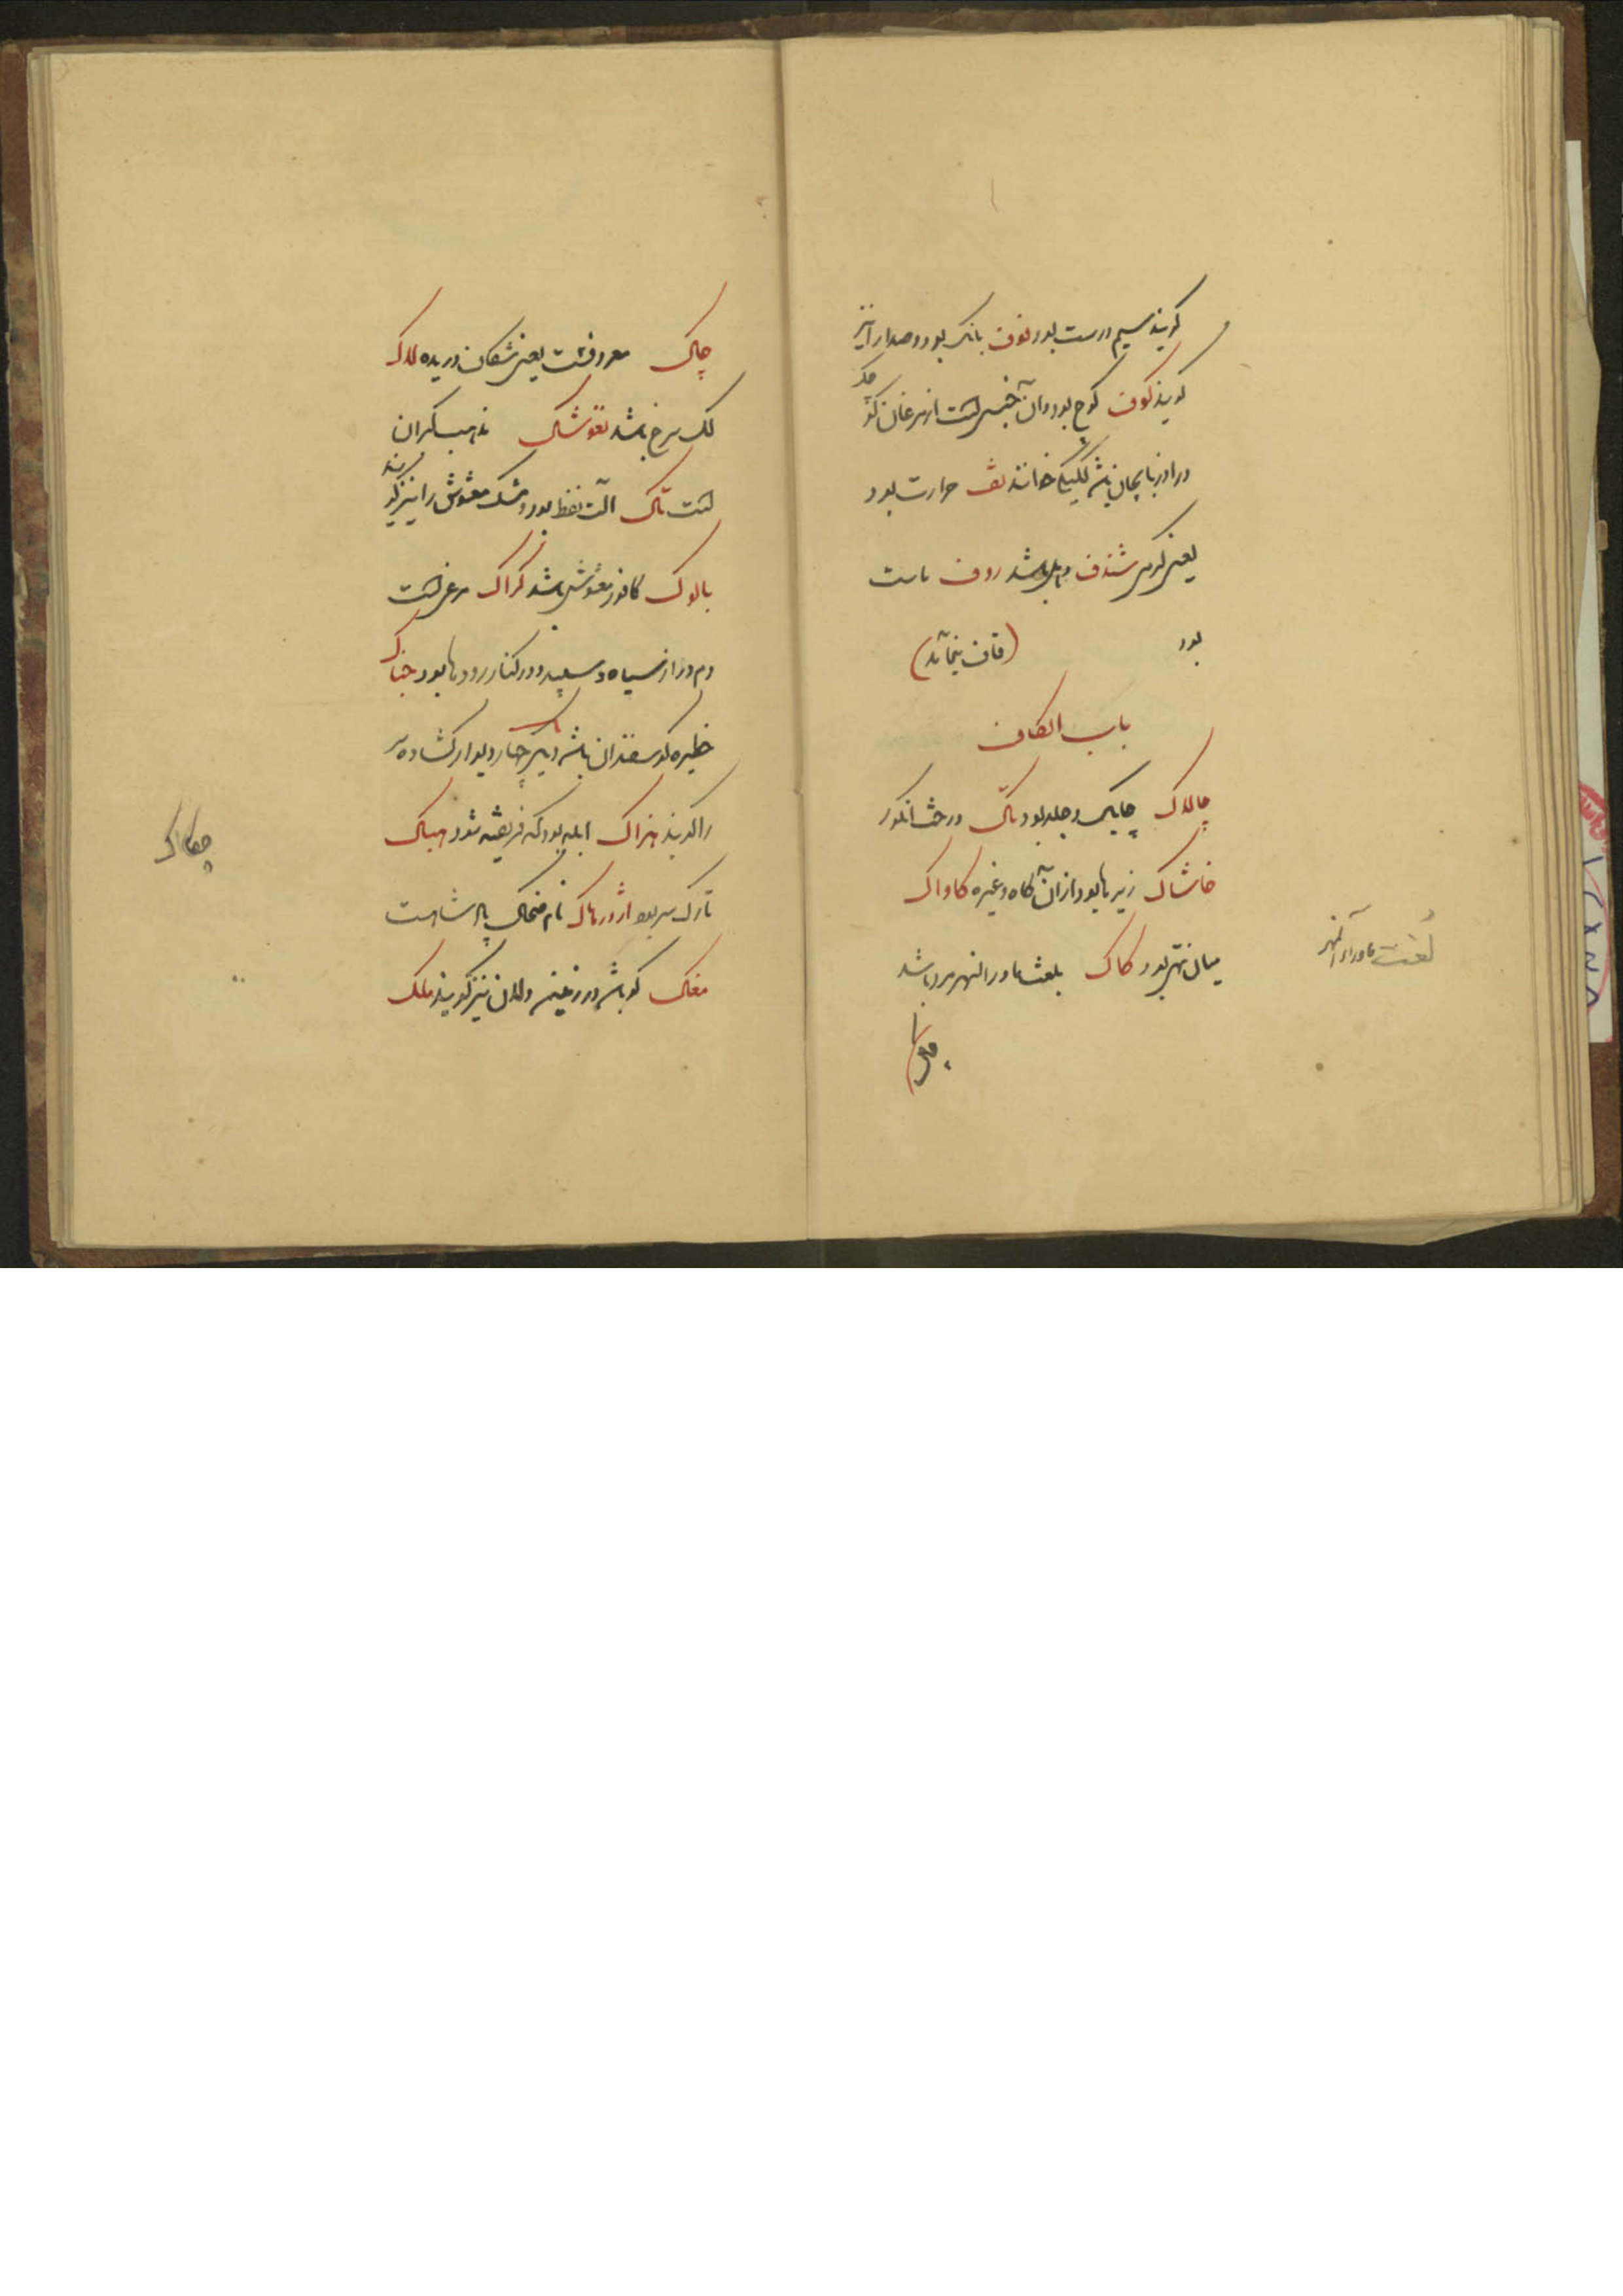 گویند سیم درست بود نوف بانک بود و صدا را نیز
گویند کوف کوچ بود و آن جنسی است از مرغان کو
چک
در آذربایجان باشد کنگیک خوانند تف حرارت بود
یعنی گرمی شندف دهل باشد روف ماست
بود (قاف نیامد)
باب الکاف
چالاک چابک و جلد بود تاک درخت انگور
خاشاک ریزها بود از آن کاه و غیره کاواک
میان تهی بود کاک بلغت ماوراالنهر مرد باشد
لغت ماوراء النهر
چاک
چاک معروفست یعنی شکاف دریده لاک
لک سرخ باشد نغوشاک مذهب گبران
است تاک آلت نفط بود و مشک مغشوش را نیز گویند
بالوک کافور مغشوش باشد کراک مرغی است
دم دراز سیاه و سپید و در کنار رودها بود خباک
حظیره گوسفندان باشد و نیز چهار دیوار گشاده سر
را گویند هزاک ابله بود که فریفته شود هباک
تارک سر بود اژدرهاک نام ضحاک پادشاهست
مغاک گو باشد در زمین و لان نیز گویند ملک
چکاک